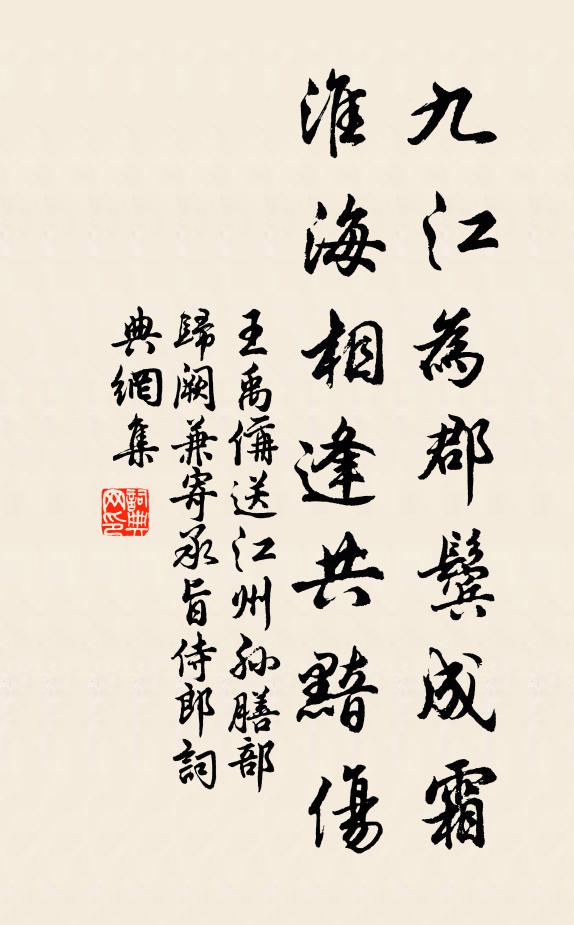 九江為郡鬢成霜
淮海相逢共黯傷
王禹偁送江州孙膳部
歸阙兼寄承旨侍郎詞
典網集
詞典网印